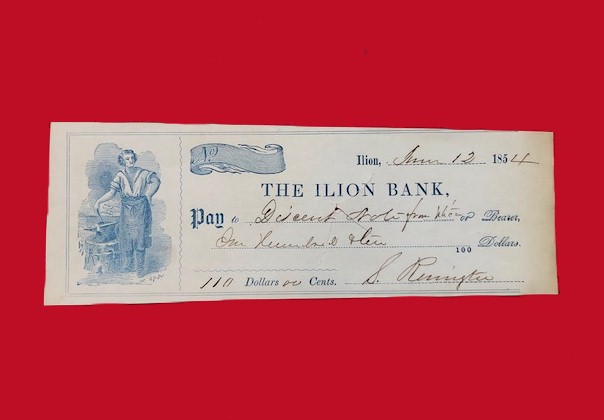 No.
Ilion, June 12 1854
THE ILION BANK,
Pay to Discount Note from or Bearer,
One hundred & ten 100 Dollars.
110 Dollars 00 Cents. S. Remington